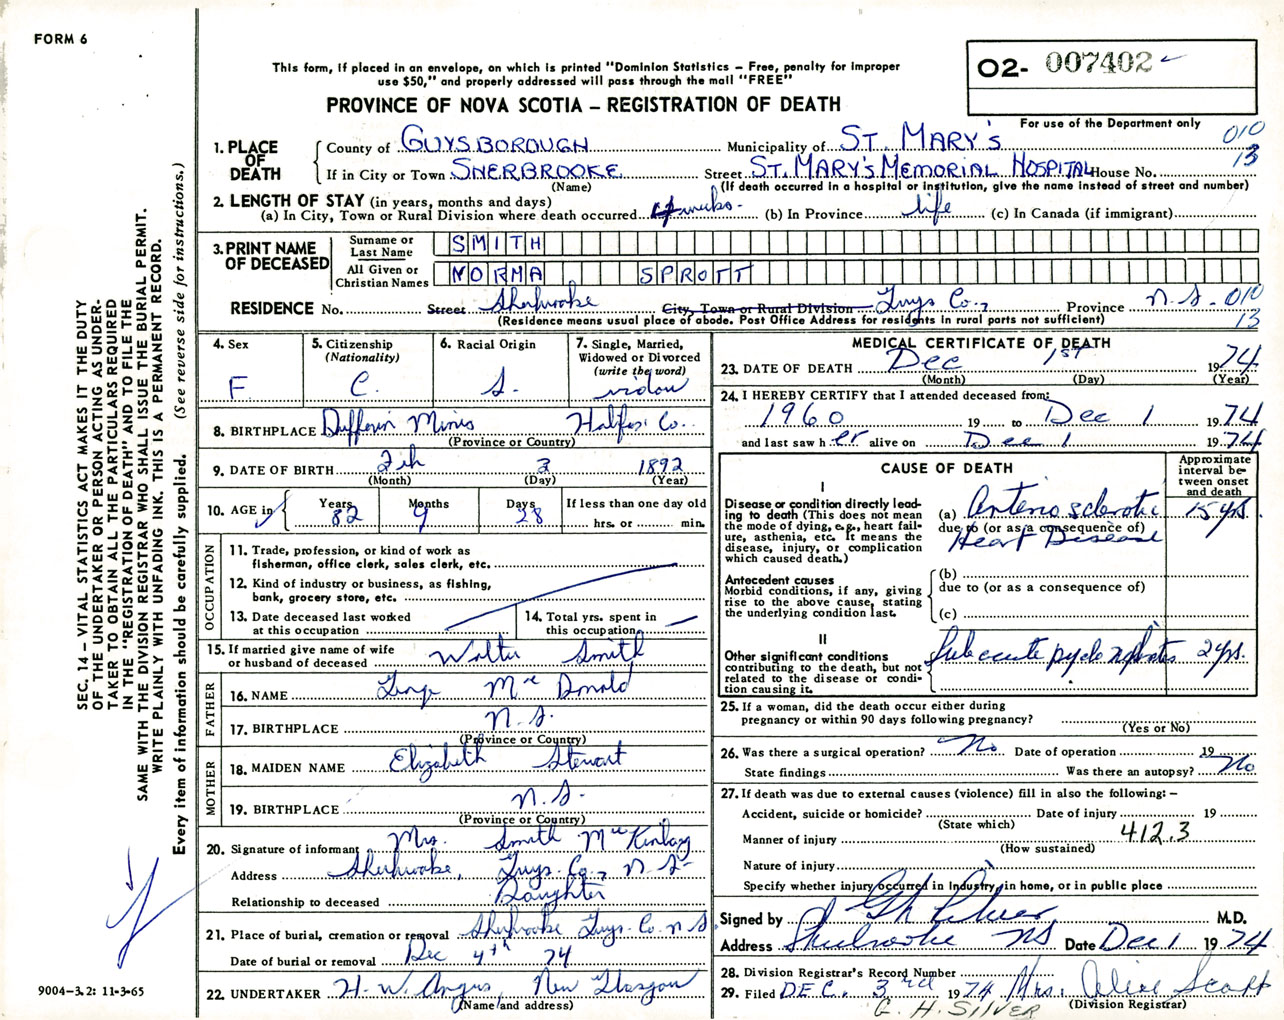 FORM 6
This form, if placed in an envelope, on which is printed "Dominion Statistics – Free, penalty for improper
use $50," and properly addressed will pass through the mail "FREE"
PROVINCE OF NOVA SCOTIA – REGISTRATION OF DEATH
O2- 007402
For use of the Department only
010
13
1. PLACE OF DEATH
County of GUYSBOROUGH Municipality of ST. MARY'S
If in City or Town SHERBROOKE Street ST. MARY'S MEMORIAL HOSPITAL House No.
(Name) (If death occurred in a hospital or institution, give the name instead of street and number)
2. LENGTH OF STAY (in years, months and days)
(a) In City, Town or Rural Division where death occurred (b) In Province life (c) In Canada (if immigrant)
3. PRINT NAME OF DECEASED
Surname or Last Name SMITH
All Given or Christian Names NORMA SPROTT
RESIDENCE No. Street Sherbrooke City, Town or Rural Division Guys Co., Province N.S. 010
(Residence means usual place of abode. Post Office Address for residents in rural parts not sufficient) 13
4. Sex F
5. Citizenship (Nationality) C.
6. Racial Origin S.
7. Single, Married, Widowed or Divorced (write the word) widow
8. BIRTHPLACE Dufferin Mines Halifax Co.
(Province or Country)
9. DATE OF BIRTH Feb 3 1892
(Month) (Day) (Year)
10. AGE in Years 82 Months 9 Days 28 If less than one day old
hrs. or min.
OCCUPATION
11. Trade, profession, or kind of work as
fisherman, office clerk, sales clerk, etc.
12. Kind of industry or business, as fishing,
bank, grocery store, etc.
13. Date deceased last worked
at this occupation
14. Total yrs. spent in
this occupation
15. If married give name of wife
or husband of deceased Walter Smith
FATHER
16. NAME George McDonald
17. BIRTHPLACE N.S.
(Province or Country)
MOTHER
18. MAIDEN NAME Elizabeth Stewart
19. BIRTHPLACE N.S.
(Province or Country)
20. Signature of informant Mrs. Smith McKinlay
Address Sherbrooke, Guys. Co., N S
Relationship to deceased Daughter
21. Place of burial, cremation or removal Sherbrooke Guys. Co. N S
Date of burial or removal Dec 4th 74
22. UNDERTAKER H. W. Angus, New Glasgow
(Name and address)
MEDICAL CERTIFICATE OF DEATH
23. DATE OF DEATH Dec 1st 1974
(Month) (Day) (Year)
24. I HEREBY CERTIFY that I attended deceased from:
1960 19 to Dec 1 1974
and last saw her alive on Dec 1 1974
CAUSE OF DEATH
Approximate interval between onset and death
I
Disease or condition directly lead-
ing to death (This does not mean
the mode of dying, e.g., heart fail-
ure, asthenia, etc. It means the
disease, injury, or complication
which caused death.)
(a) Arteriosclerotic 15 yrs.
due to (or as a consequence of)
Heart Disease
Antecedent causes
Morbid conditions, if any, giving
rise to the above cause, stating
the underlying condition last.
(b)
due to (or as a consequence of)
(c)
II
Other significant conditions
contributing to the death, but not
related to the disease or condi-
tion causing it.
Subacute pyelonephritis 2 yrs.
25. If a woman, did the death occur either during
pregnancy or within 90 days following pregnancy?
(Yes or No)
26. Was there a surgical operation? No Date of operation 19
State findings Was there an autopsy? No
27. If death was due to external causes (violence) fill in also the following: –
Accident, suicide or homicide? Date of injury 19
(State which)
Manner of injury 412.3
(How sustained)
Nature of injury
Specify whether injury occurred in industry, in home, or in public place
Signed by M.D.
Address Sherbrooke NS Date Dec 1 1974
28. Division Registrar's Record Number
29. Filed DEC. 3rd 1974 Mrs. Alice Scott
(Division Registrar)
G. H. SILVER
SEC. 14 – VITAL STATISTICS ACT MAKES IT THE DUTY
OF THE UNDERTAKER OR PERSON ACTING AS UNDER-
TAKER TO OBTAIN ALL THE PARTICULARS REQUIRED
IN THE "REGISTRATION OF DEATH" AND TO FILE THE
SAME WITH THE DIVISION REGISTRAR WHO SHALL ISSUE THE BURIAL PERMIT.
WRITE PLAINLY WITH UNFADING INK. THIS IS A PERMANENT RECORD.
Every item of information should be carefully supplied. (See reverse side for instructions.)
9004-3.2: 11-3-65